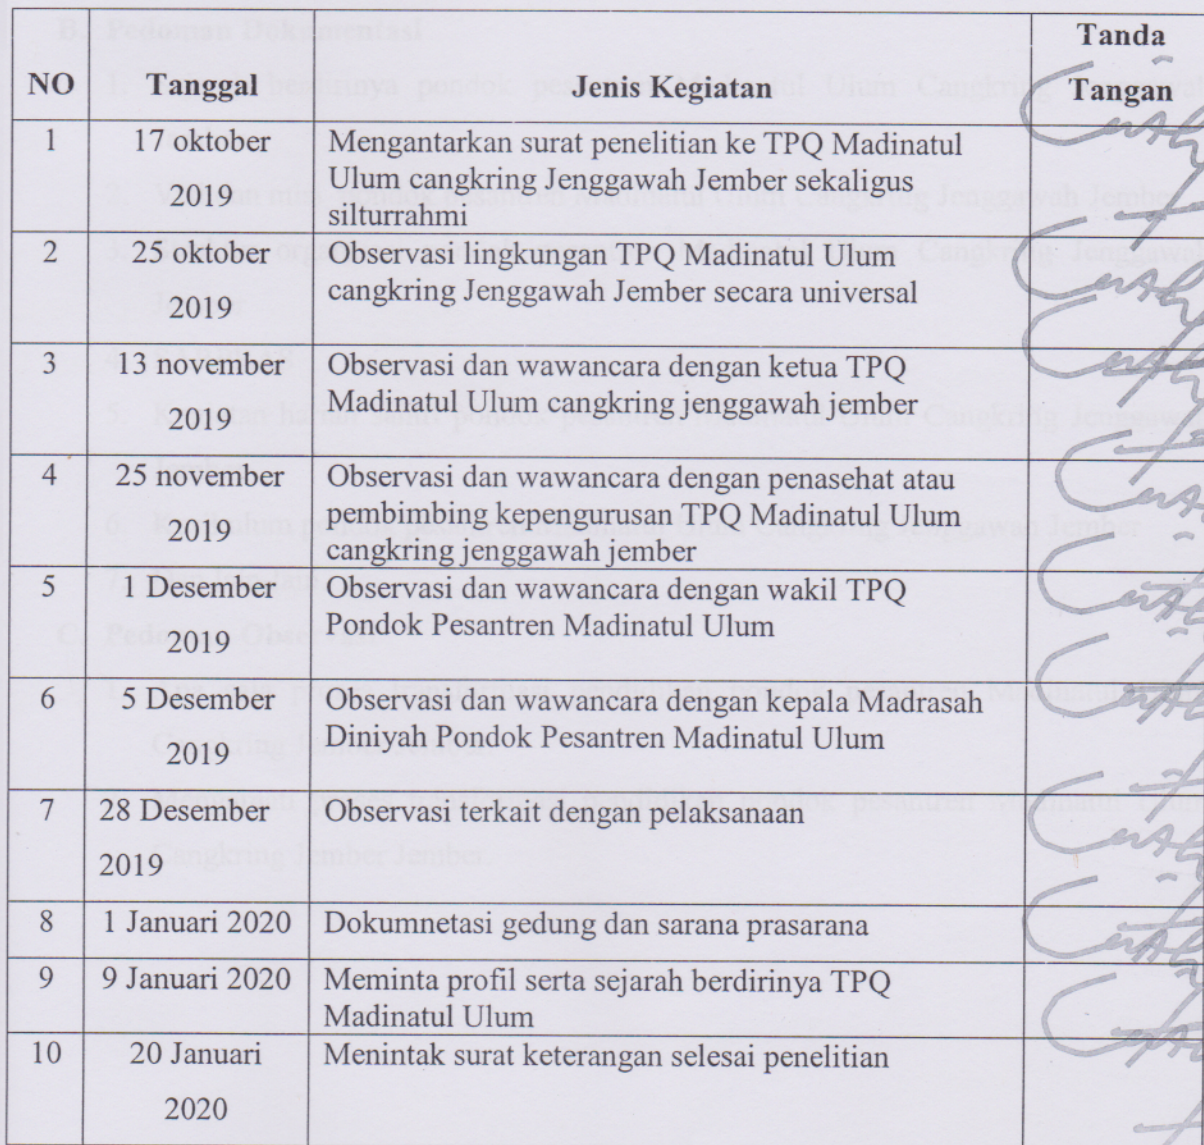 NO Tanggal Jenis Kegiatan Tanda
Tangan
1 17 oktober
2019 Mengantarkan surat penelitian ke TPQ Madinatul
Ulum cangkring Jenggawah Jember sekaligus
silturrahmi
2 25 oktober
2019 Observasi lingkungan TPQ Madinatul Ulum
cangkring Jenggawah Jember secara universal
3 13 november
2019 Observasi dan wawancara dengan ketua TPQ
Madinatul Ulum cangkring jenggawah jember
4 25 november
2019 Observasi dan wawancara dengan penasehat atau
pembimbing kepengurusan TPQ Madinatul Ulum
cangkring jenggawah jember
5 1 Desember
2019 Observasi dan wawancara dengan wakil TPQ
Pondok Pesantren Madinatul Ulum
6 5 Desember
2019 Observasi dan wawancara dengan kepala Madrasah
Diniyah Pondok Pesantren Madinatul Ulum
7 28 Desember
2019 Observasi terkait dengan pelaksanaan
8 1 Januari 2020 Dokumnetasi gedung dan sarana prasarana
9 9 Januari 2020 Meminta profil serta sejarah berdirinya TPQ
Madinatul Ulum
10 20 Januari
2020 Menintak surat keterangan selesai penelitian